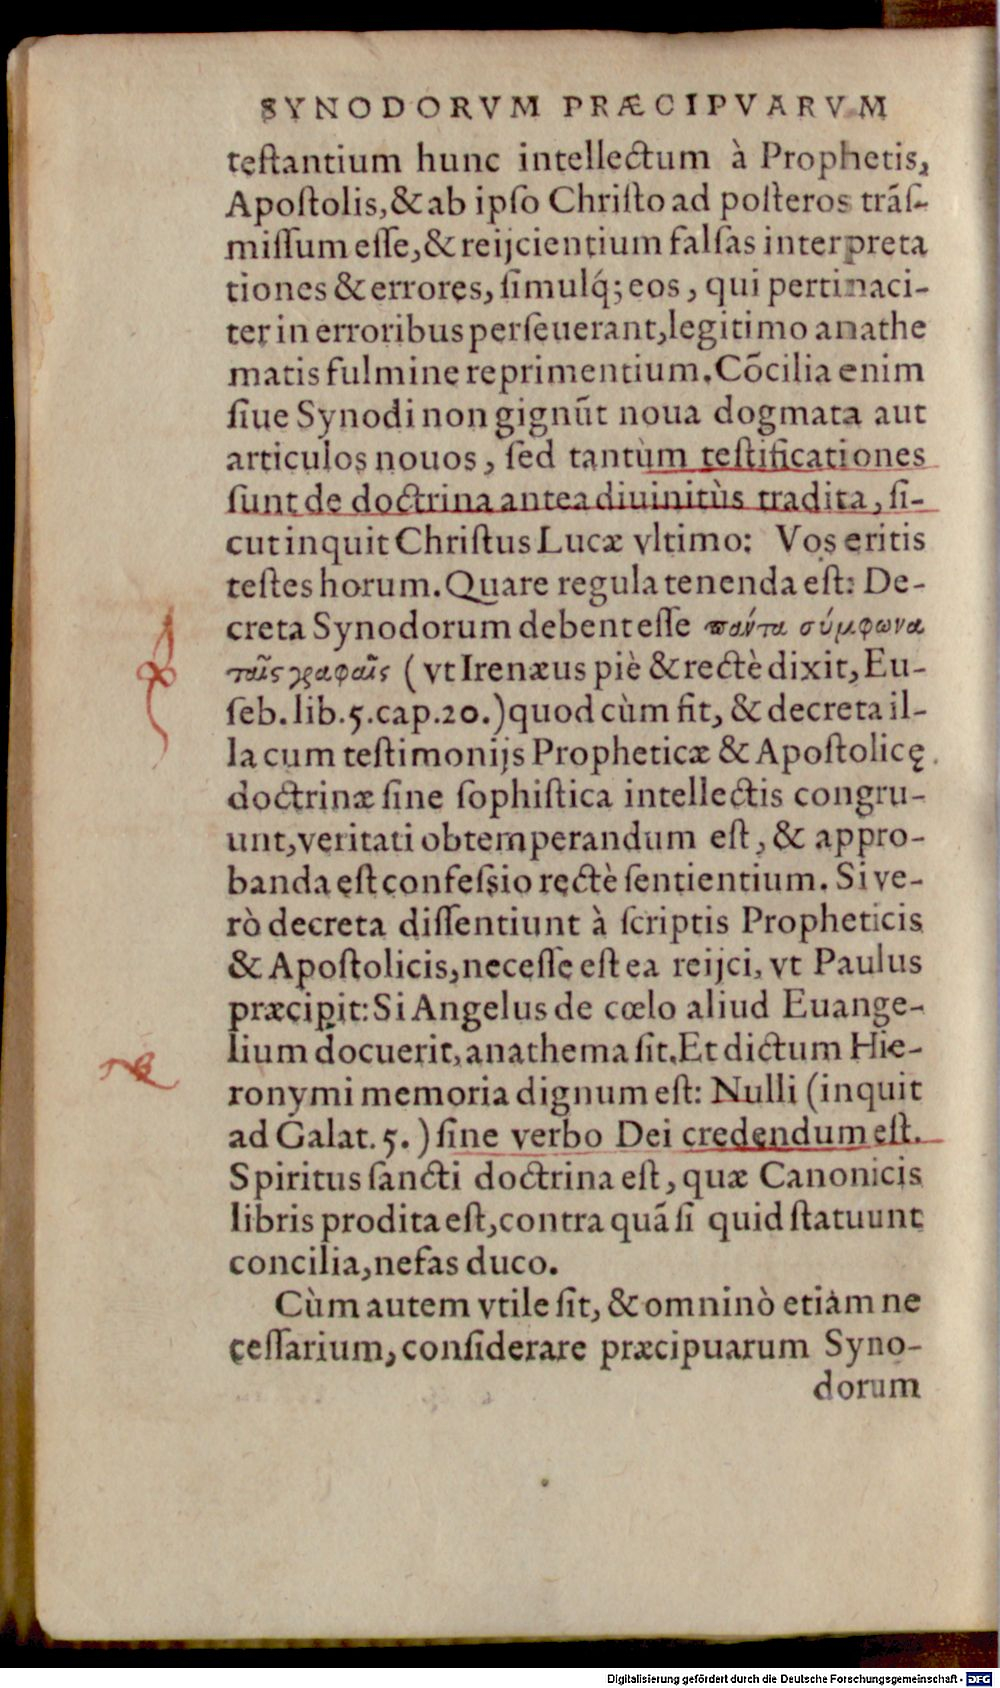 SYNODORVM PRÆCIPVARVM
teſtantium hunc intellectum à Prophetis,
Apoſtolis,&ab ipſo Chriſto ad poſteros trãſ-
miſſum eſſe,&reijcientium falſas interpreta
tiones & errores, ſimulq́; eos, qui pertinaci-
ter in erroribus perſeuerant,legitimo anathe
matis fulmine reprimentium. Cõcilia enim
ſiue Synodi non gignũt noua dogmata aut
articulos nouos, ſed tantùm teſtificationes
ſunt de doctrina antea diuinitùs tradita, ſi-
cut inquit Chriſtus Lucæ vltimo: Vos eritis
teſtes horum. Quare regula tenenda eſt: De-
creta Synodorum debent eſſe παύτα σύμφωνα
ταῖς γραφαῖς ( vt Irenæus piè & rectè dixit, Eu-
ſeb. lib. 5. cap. 20.) quod cùm fit, & decreta il-
la cum teſtimonijs Propheticæ & Apoſtolicę
doctrinæ ſine ſophiſtica intellectis congru-
unt,veritati obtemperandum eſt, & appro-
banda eſt confeſsio rectè ſentientium. Si ve-
rò decreta diſſentiunt à ſcriptis Propheticis
& Apoſtolicis,neceſſe eſt ea reijci, vt Paulus
præcipit: Si Angelus de cœlo aliud Euange-
lium docuerit,anathema ſit. Et dictum Hie-
ronymi memoria dignum eſt: Nulli (inquit
ad Galat. 5.) ſine verbo Dei credendum eſt.
Spiritus ſancti doctrina eſt, quæ Canonicis
libris prodita eſt,contra quã ſi quid ſtatuunt
concilia,nefas duco.
Cùm autem vtile ſit, & omninò etiam ne
ceſſarium, conſiderare præcipuarum Syno-
dorum
Digitalisierung gefördert durch die Deutsche Forschungsgemeinschaft - DFG